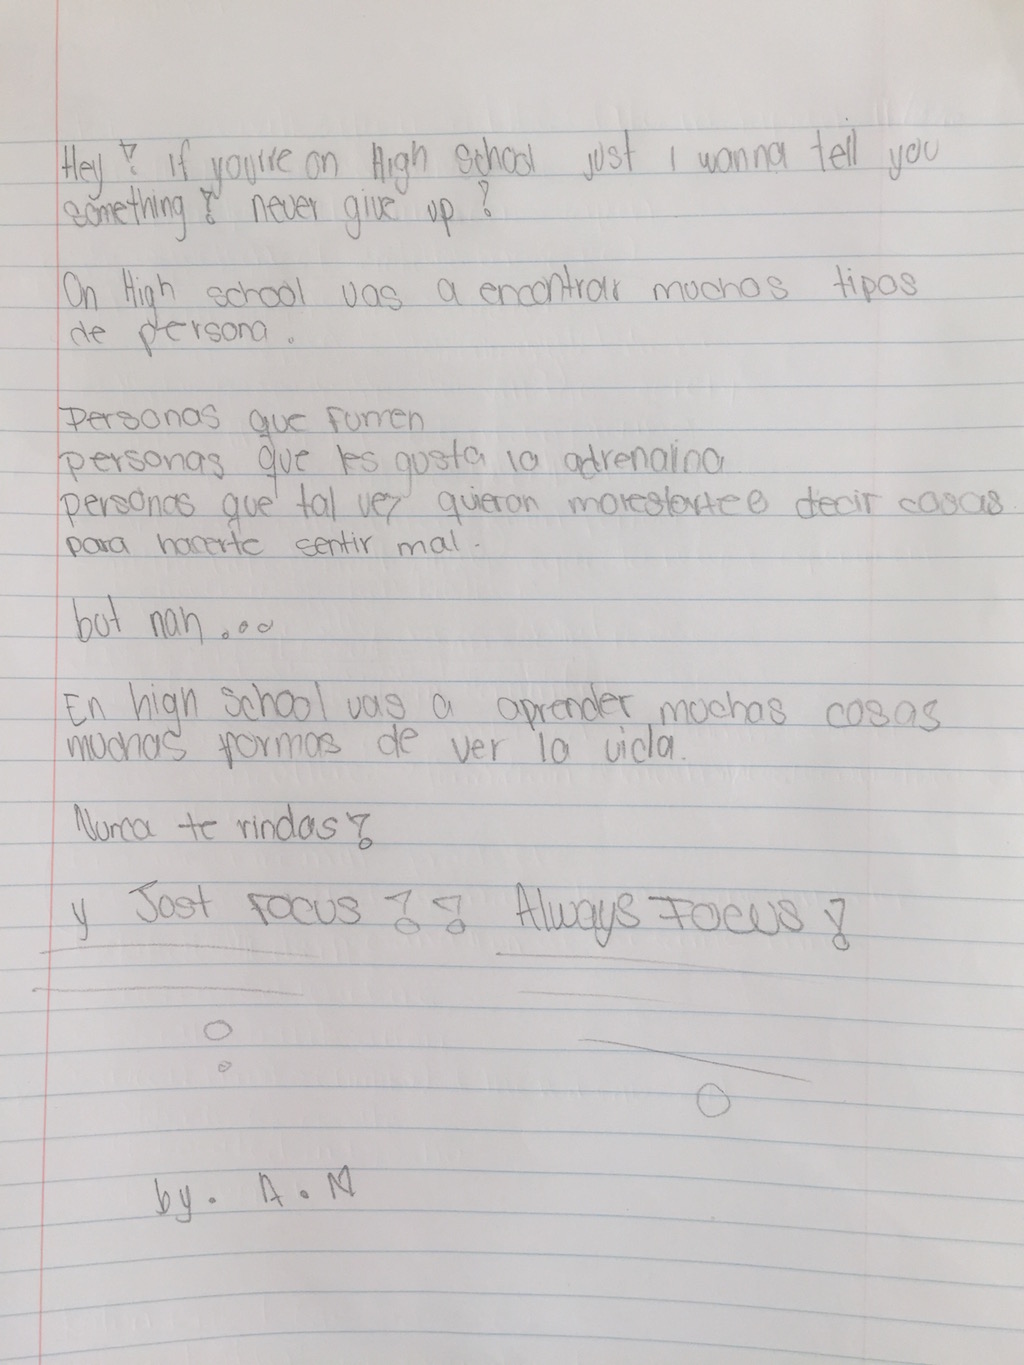 Hey! If you're on High School just I wanna tell you
something! never give up!
On High school vas a encontrar muchos tipos
de persona.
Personas que fumen
personas que les gusta la adrenalina
personas que tal vez quieran molestarte o decir cosas
para hacerte sentir mal.
but nah...
En high school vas a aprender muchas cosas
muchas formas de ver la vida.
Nunca te rindas!
y Just Focus!! Always Focus!
by. A.M